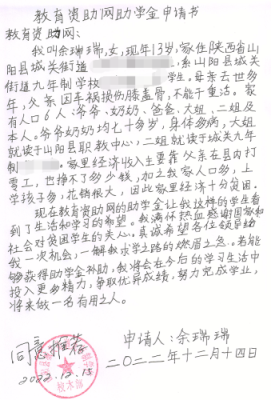 教育资助网助学金申请书
教育资助网:
我叫余瑞瑞,女,现年13岁,家住陕西省山
阳县城关街道 系山阳县城关
街道九年制学校 学生。母亲去世多
年,父亲因车祸损伤膝盖骨,不能干重活。家
有人口6人:爷爷、奶奶、爸爸、大姐、二姐及
本人。爷爷奶奶均七十多岁,身体多病,大姐
就读于山阳县职教中心,二姐就读于城关九年
制 家里经济收入主要靠父亲在县内打
零工,也挣不了多少钱,加之我家人口多,上
学孩子多,花销很大,因此家里经济十分贫困。
现在教育资助网的助学金让我这样的学生看
到了生活和学习的希望。我满怀热血感谢国家和
社会对贫困学生的关心。真诚希望各位领导给
我一次机会,一解我求学之路的燃眉之急。若能
够获得助学金补助,我将会在今后的学习生活中
投入更多精力,争取优异成绩,努力完成学业,
将来做一名有用之人。
申请人:余瑞瑞
同意推荐
二〇二二年十二月十四日
2022.12.15